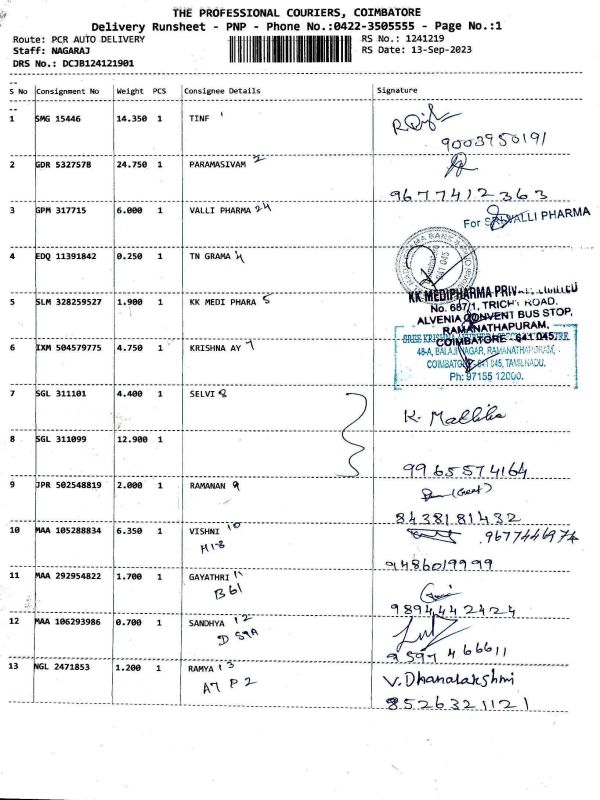 THE PROFESSIONAL COURIERS, COIMBATORE
Delivery Runsheet - PNP - Phone No.:0422-3505555 - Page No.:1
Route: PCR AUTO DELIVERY RS No.: 1241219
Staff: NAGARAJ RS Date: 13-Sep-2023
DRS No.: DCJB124121901
S No Consignment No Weight PCS Consignee Details Signature
1 SMG 15446 14.350 1 TINF 1
9003950191
2 GDR 5327578 24.750 1 PARAMASIVAM 2
9677412363
3 GPM 317715 6.000 1 VALLI PHARMA 24
For VALLI PHARMA
4 EDQ 11391842 0.250 1 TN GRAMA 4
641 045
5 SLM 328259527 1.900 1 KK MEDI PHARA 5
KK MEDIPHARMA PRIVATE LIMITED
No. 687/1, TRICHY ROAD,
ALVENIA CONVENT BUS STOP,
RAMANATHAPURAM,
COIMBATORE - 641 045.
6 IXM 504579775 4.750 1 KRISHNA AY 7
48-A, BALAJI NAGAR, RAMANATHAPURAM,
COIMBATORE - 641 045, TAMILNADU.
Ph: 97155 12000.
7 SGL 311101 4.400 1 SELVI 8
K. Mallika
8 SGL 311099 12.900 1
9965574164
9 JPR 502548819 2.000 1 RAMANAN 9
8438181432
10 MAA 105288834 6.350 1 VISHNI 10
H18
9486019999
11 MAA 292954822 1.700 1 GAYATHRI 11
B61
9894442424
12 MAA 106293986 0.700 1 SANDHYA 12
D 59A
9597466611
13 NGL 2471853 1.200 1 RAMYA 13
V. Dhanalakshmi
A7 P2
8526321121